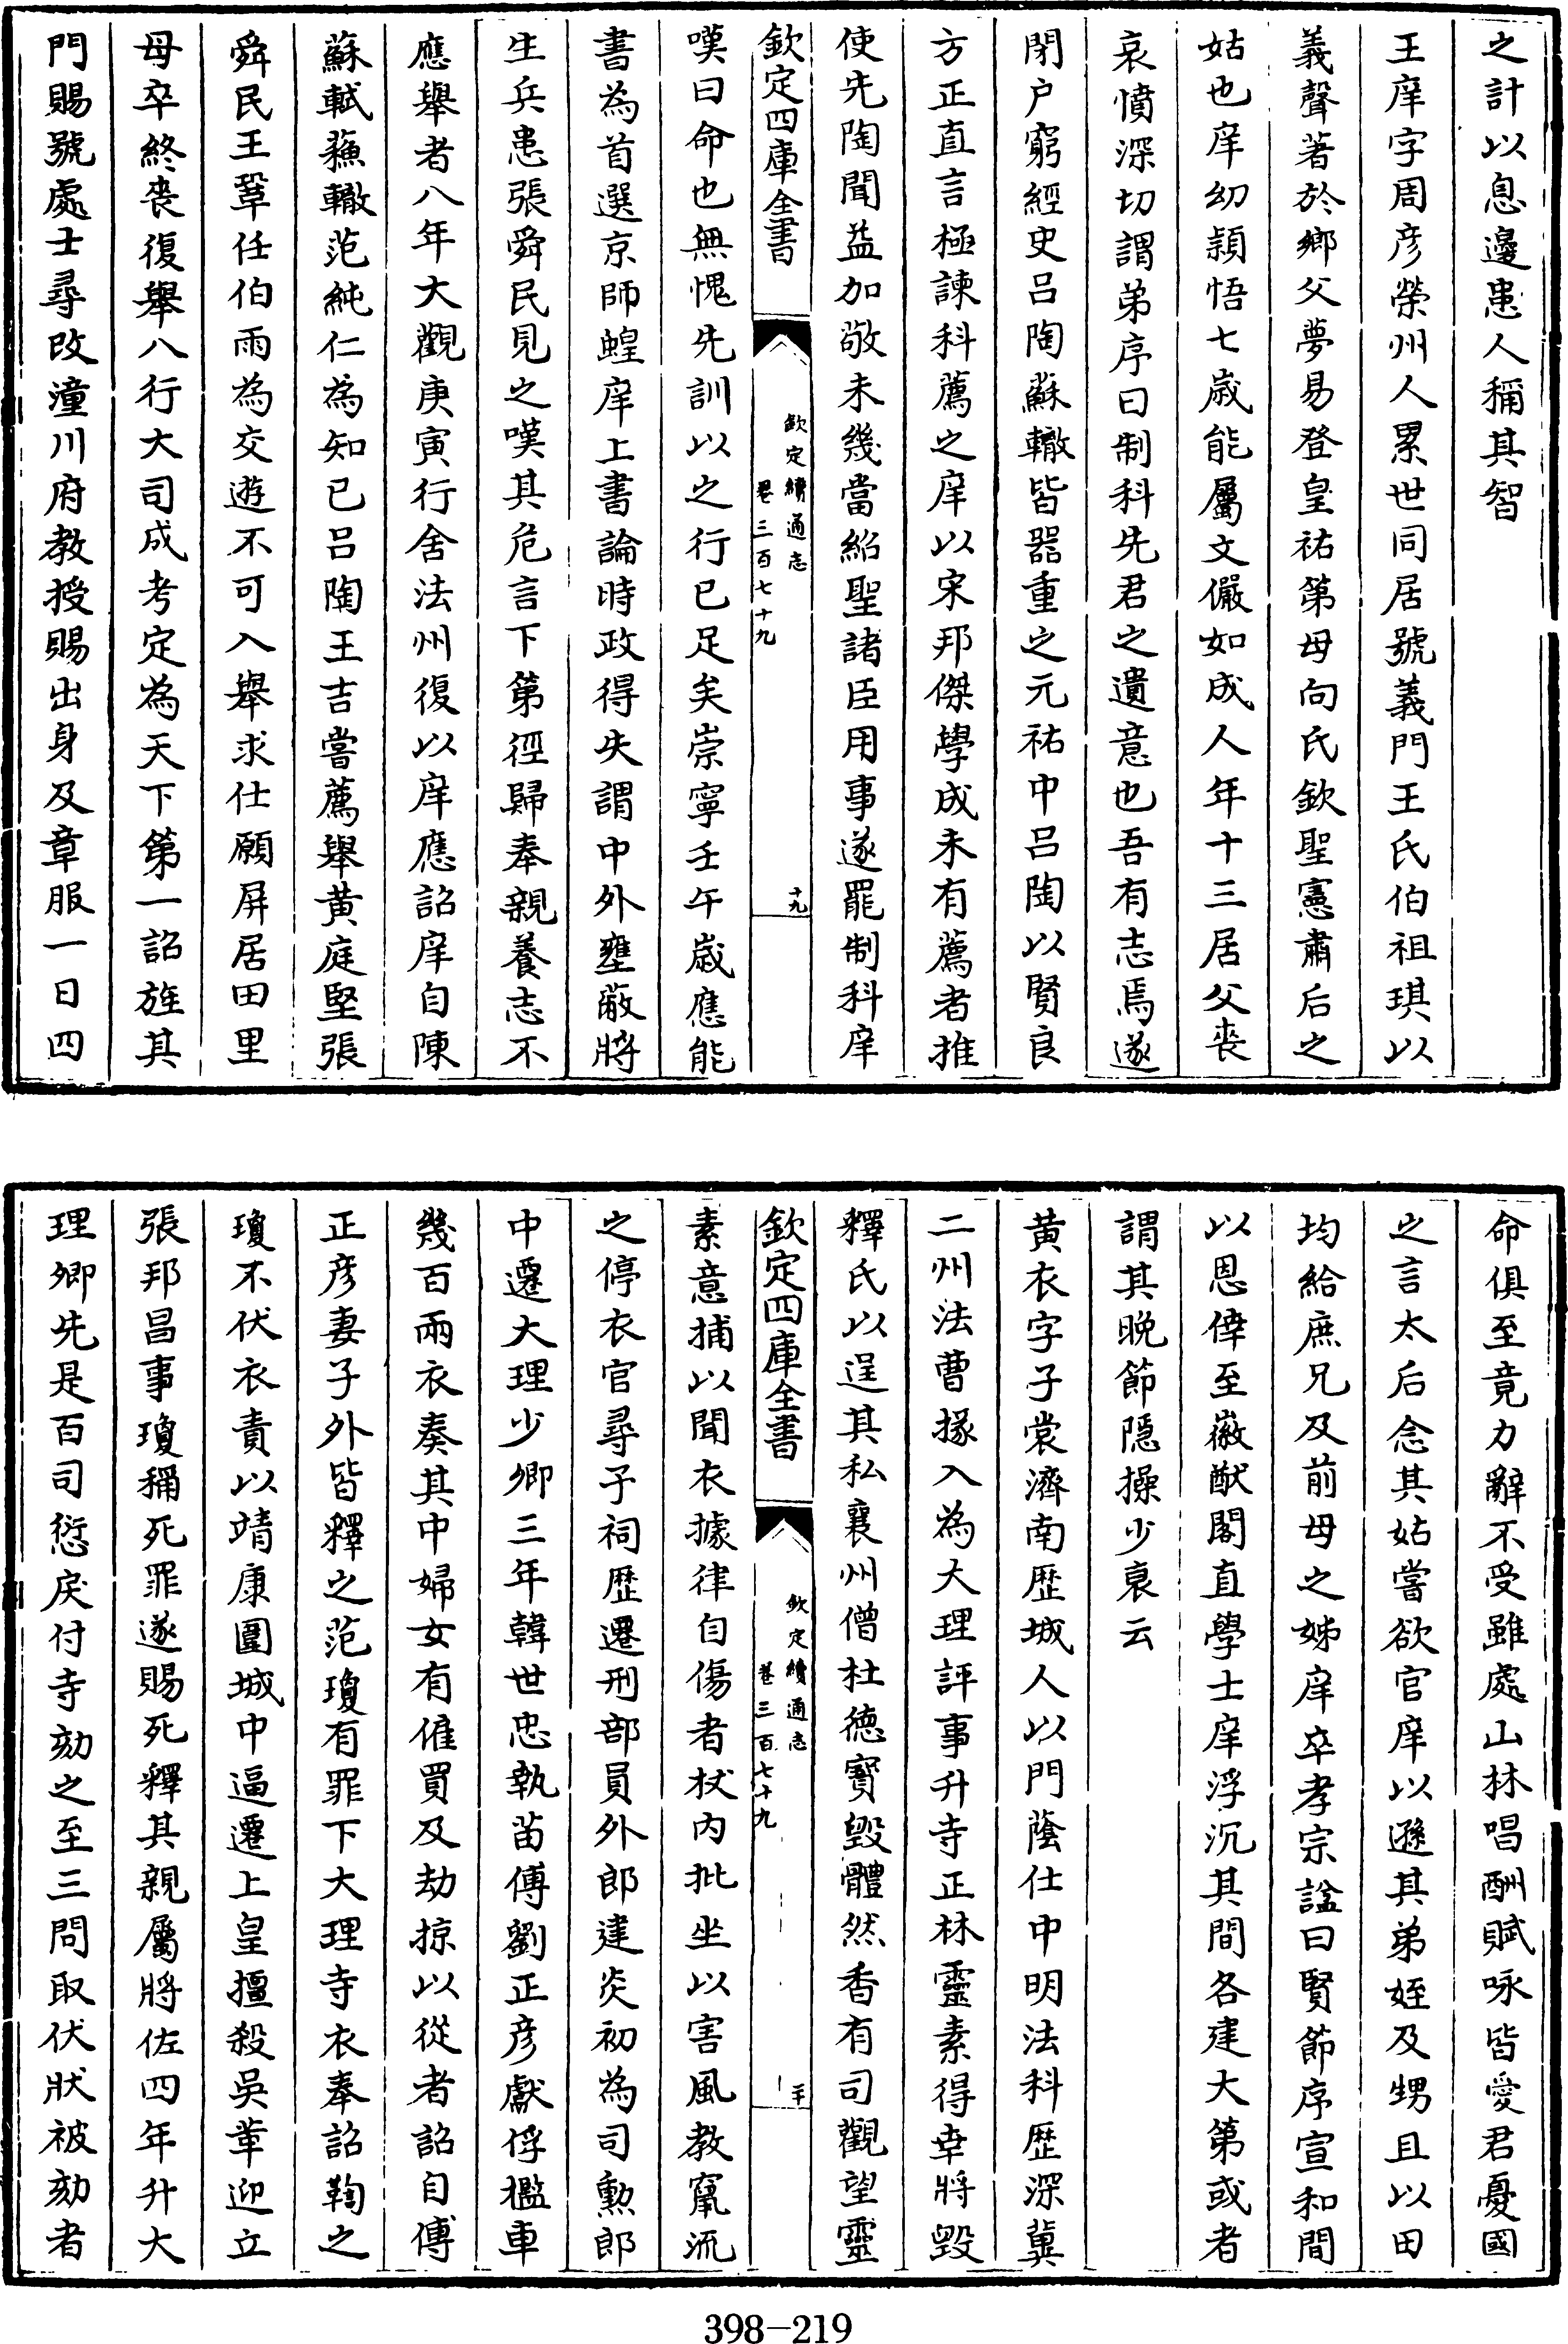 之計以息邊患人稱其智
王庠字周彦榮州人累世同居號義門王氏伯祖琪以
義聲著於鄉父夢易登皇祐第母向氏欽聖憲肅后之
姑也庠幼穎悟七歲能屬文儼如成人年十三居父喪
哀憤深切謂弟序曰制科先君之遺意也吾有志焉遂
閉户窮經史吕陶蘇轍皆器重之元祐中吕陶以賢良
方正直言極諫科薦之庠以宋邦傑學成未有薦者推
使先陶聞益加敬未幾當紹聖諸臣用事遂罷制科庠
欽定四庫全書
欽定續通志
卷三百七十九
十九
嘆曰命也無愧先訓以之行已足矣崇寧壬午歲應能
書為首選京師蝗庠上書論時政得失謂中外壅蔽將
生兵患張舜民見之嘆其危言下第徑歸奉親養志不
應舉者八年大觀庚寅行舍法州復以庠應詔庠自陳
蘇軾蘓轍范純仁為知已吕陶王吉嘗薦舉黄庭堅張
舜民王鞏任伯雨為交遊不可入舉求仕願屏居田里
母卒終喪復舉八行大司成考定為天下第一詔旌其
門賜號處士尋改潼川府教授賜出身及章服一日四
命俱至竟力辭不受雖處山林唱酬賦咏皆愛君憂國
之言太后念其姑嘗欲官庠以遜其弟姪及甥且以田
均給庶兄及前母之姊庠卒孝宗諡曰賢節序宣和間
以恩倖至徽猷閣直學士庠浮沉其間各建大第或者
謂其晚節隠操少衰云
黄衣字子裳濟南歴城人以門蔭仕中明法科歴深冀
二州法曹掾入為大理評事升寺正林靈素得幸將毁
釋氏以逞其私襄州僧杜徳寳毁體然香有司觀望靈
欽定四庫全書
欽定續通志
卷三百七十九
二十
素意捕以聞衣據律自傷者杖内批坐以害風教竄流
之停衣官尋予祠歴遷刑部員外郎建炎初為司勲郎
中遷大理少卿三年韓世忠執苗傅劉正彦獻俘檻車
幾百兩衣奏其中婦女有僱買及劫掠以從者詔自傅
正彦妻子外皆釋之范瓊有罪下大理寺衣奉詔鞫之
瓊不伏衣責以靖康圍城中逼遷上皇擅殺吳革迎立
張邦昌事瓊稱死罪遂賜死釋其親屬將佐四年升大
理卿先是百司愆戾付寺劾之至三問取伏狀被劾者
398-219